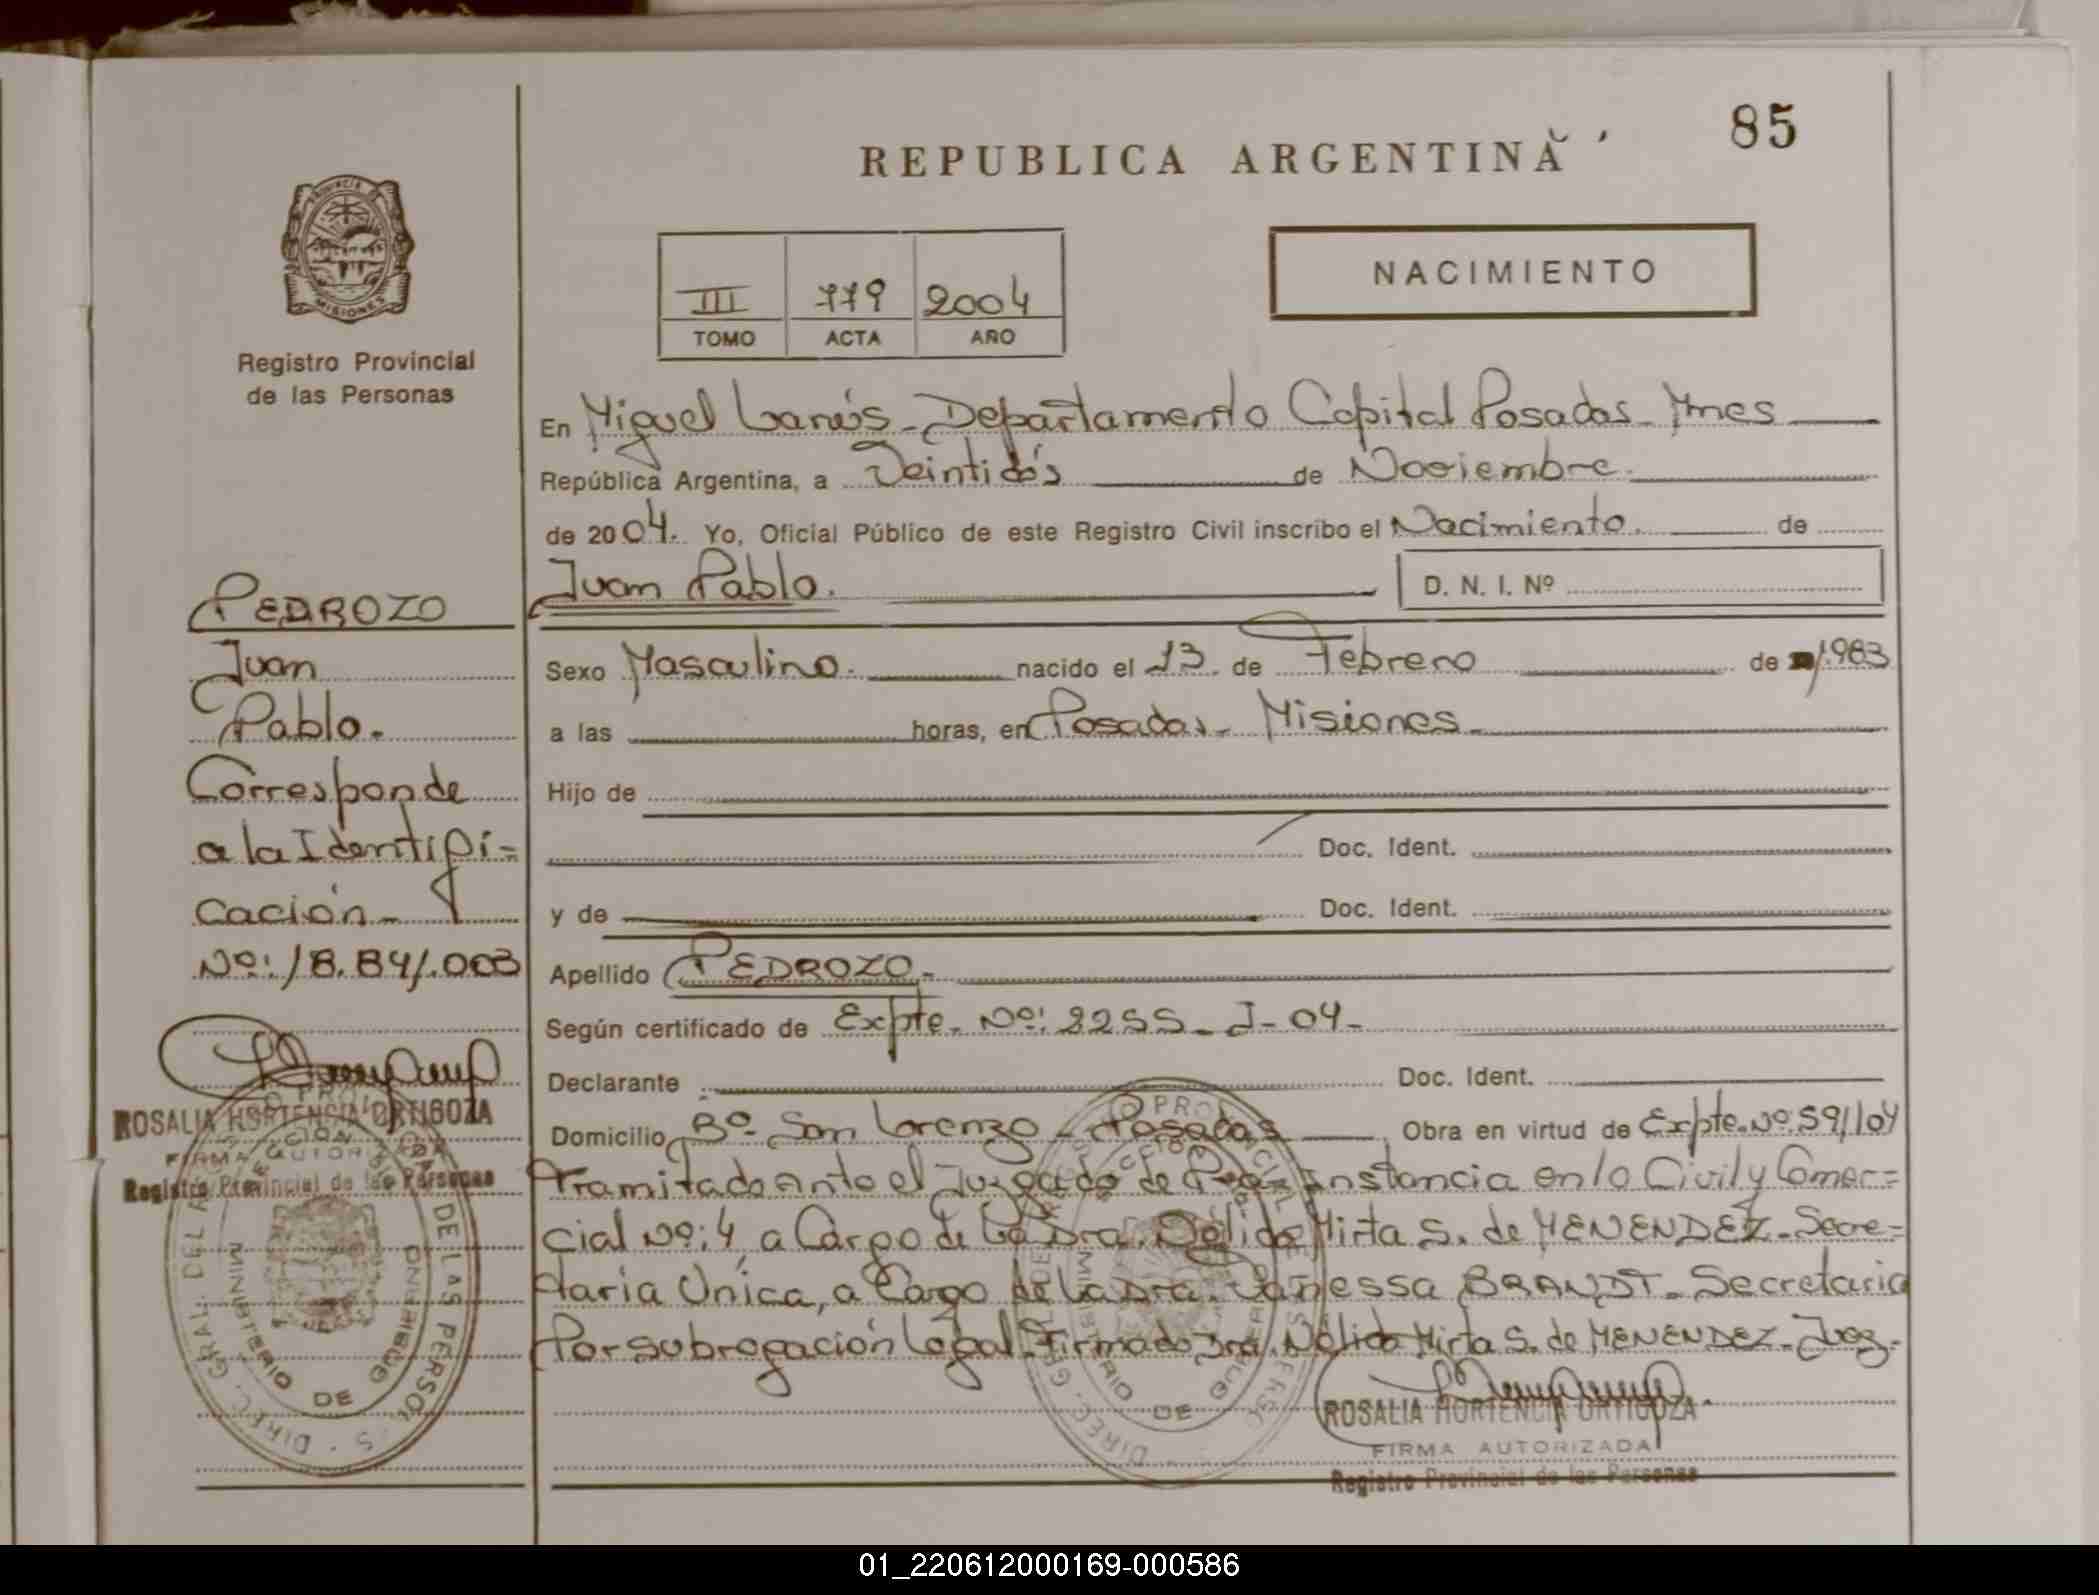 85
REPUBLICA ARGENTINA
NACIMIENTO
III 779 2004
TOMO ACTA AÑO
PROVINCIA DE
MISIONES
Registro Provincial
de las Personas
En Miguel Lanús - Departamento Capital Posadas - Mnes
República Argentina, a Veintidós de Noviembre.
de 2004. Yo, Oficial Público de este Registro Civil inscribo el Nacimiento. de
Juan Pablo. D. N. I. Nº
Sexo Masculino. nacido el 13. de Febrero de 1.983
a las horas, en Posadas - Misiones
Hijo de
Doc. Ident.
y de Doc. Ident.
Apellido PEDROZO.
Según certificado de Expte. Nº: 2255 - J - 04 -
Declarante Doc. Ident.
Domicilio Bº San Lorenzo - Posadas Obra en virtud de Expte. Nº 591/04
Tramitado Ante el Juzgado de Instancia en lo Civil y Comer=
cial Nº: 4, a Cargo de la Dra. Nélida Mirta S. de MENENDEZ - Secre=
taria Única, a Cargo de la Dra. Vanessa BRANDT - Secretaria
Por subrogación Legal - Firmado Dra. Nélida Mirta S. de MENENDEZ - Juez -
ROSALIA HORTENCIA ORTIGOZA
FIRMA AUTORIZADA
Registro Provincial de las Personas
PEDROZO
Juan
Pablo.
Corresponde
a la Identifi=
cación -
Nº: 18.841.003
ROSALIA HORTENCIA ORTIGOZA
FIRMA AUTORIZADA
Registro Provincial de las Personas
DIREC. GRAL. DEL DE LAS PERSO
MINISTERIO DE GOBIERNO
01_220612000169-000586